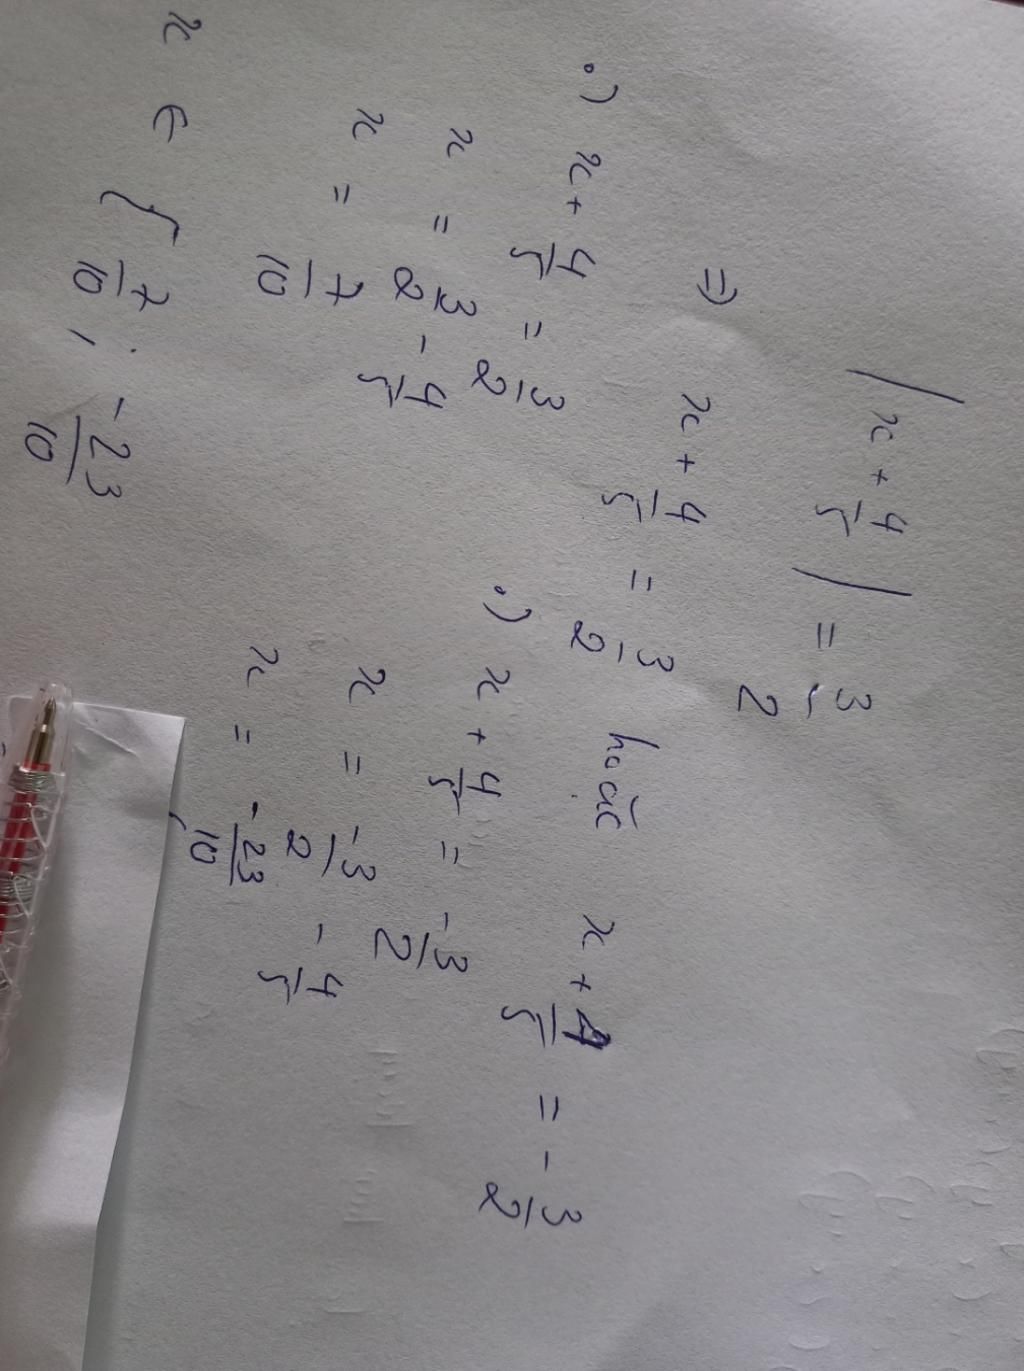 | x + 4/5 | = 3/2
=> x + 4/5 = 3/2 hoặc x + 4/5 = - 3/2
.) x + 4/5 = 3/2
x = 3/2 - 4/5
x = 7/10
.) x + 4/5 = -3/2
x = -3/2 - 4/5
x = -23/10
x ∈ { 7/10 ; -23/10